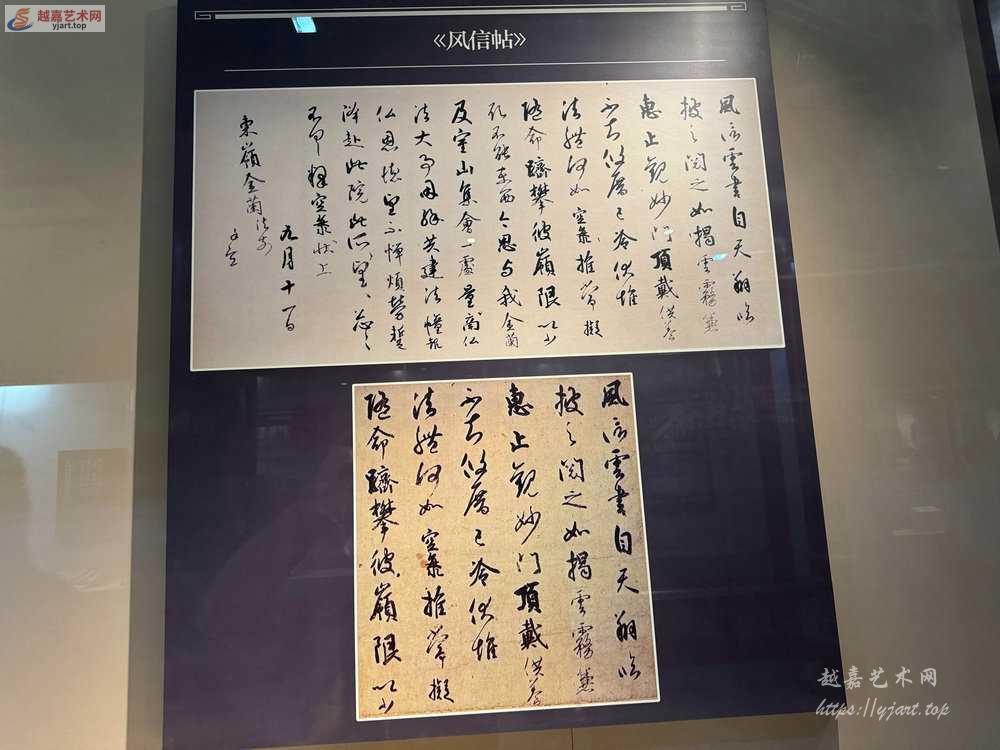 越嘉艺术网
yjart.top
《风信帖》
風信雲書自天翔臨
披之閲之如揭雲霧兼
惠止觀妙門頂戴供養
不知攸厝已冷伏惟
法體何如空海推常擬
隨命躋攀彼嶺限以少
願不能東西今思与我金蘭
及室山集會一處量商仏
法大事因縁共建法幢報
仏恩徳望不憚煩勞蹔
降赴此院此所望々忩々
不具釋空海状上
九月十一日
東嶺金蘭法前
謹空
風信雲書自天翔臨
披之閲之如揭雲霧兼
惠止觀妙門頂戴供養
不知攸厝已冷伏惟
法體何如空海推常擬
隨命躋攀彼嶺限以少
越嘉艺术网
https://yjart.top